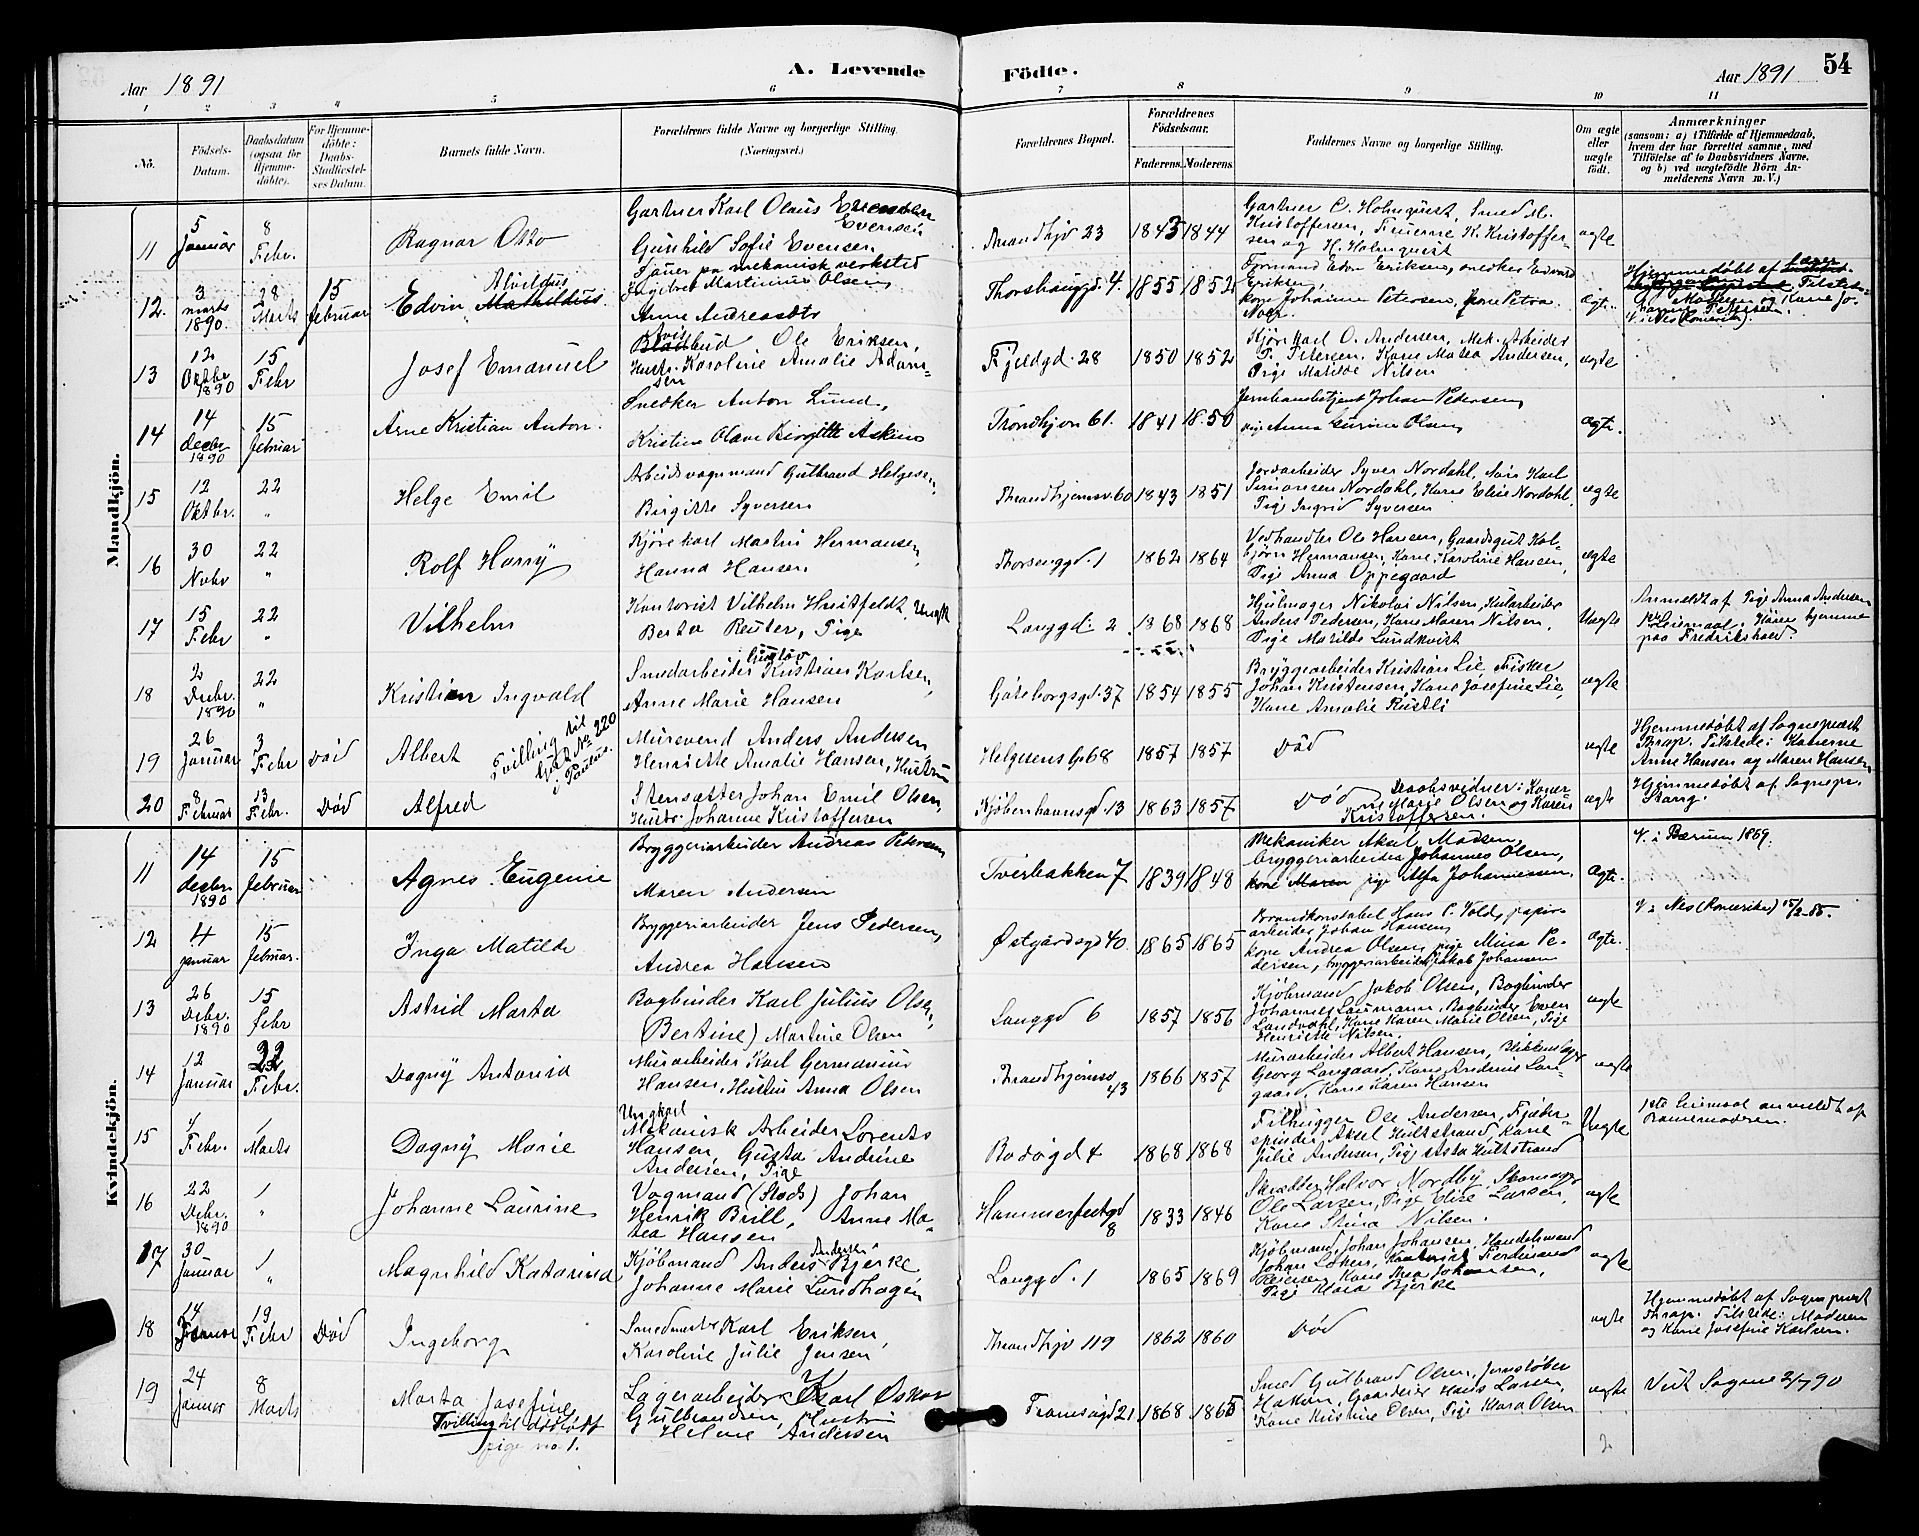 Aar 1891
A. Levende
Födte.
Aar 1891
54
1 2 3 4 5 6 7 8 9 10 11
No.
Födsels-Datum.
Daabsdatum (ogsaa for Hjemme-döbte).
For Hjemme-döbte: Daabs-Stadfæstel-ses Datum.
Barnets fulde Navn.
Forældrenes fulde Navne og borgerlige Stilling.
(Næringsvei.)
Forældrenes Bopæl.
Forældrenes Födselsaar.
Faderens. Moderens.
Faddernes Navne og borgerlige Stilling.
Om ægte eller uægte födt.
Anmærkninger
(saasom: a) i Tilfælde af Hjemmedaab,
hvem der har forrettet samme, med
Tilföielse af to Daabsvidners Navne,
og b) ved uægtefödte Börn An-
melderens Navn m. V.)
Mandkjön.
11
5 Januar
8 Febr.
Ragnar Otto
Gartner Karl Olaus
Evensen
Gunhild Sofie Evensen
Thrandhjv 23
1843 1844
Gartner C. Holmquist, Smed M.
Kristoffersen, Fruerne K. Kristoffer-
sen og H. Holmquist
ægte
12.
3 marts 1890.
28 Marts
15 februar
Edvin Alvildus Mathildus
på mekanisk verksted
Ingebret Martinius Olsen,
Anne Andreasdtr
Thorshauggd. 4.
1855 1852
Formand Edv. Eriksen, snedker Edvard
Eriksen,
kone Johanne Petersen, kone Petra
ægte.
Hjemmedøbt af
Moderen og Kone Jo-
hanne Petersen.
V. i Nes (Romerike).
13
12 Oktbr 1890
15 Febr
Josef Emanuel
Ole Eriksen,
Hustr. Karoline Amalie Adam-
sen
Fjeldgd. 28
1850 1852
Kjørekarl O. Andersen, Mek. Arbeider
P. Petersen, Kone Matea Andersen,
Pige Matilde Nilsen
ægte
14
14 Decbr 1890
15 februar
Arne Kristian Anton.
Snedker Anton Lund,
Kristine Olave Birgitte
Trondhjvn 61.
1841 1850
Jernbanebetjent Johan Pedersen,
pige Anna Gurine Olsen,
ægte.
15
12 Oktbr.
22 "
Helge Emil
Arbeidsvognmand Gulbrand Helgesen,
Birgitte Syversen
Thrandhjemsv. 60
1843 1851
Jordarbeider Syver Nordahl,
Simonsen Nordahl, Kone Elise Nordahl,
Pige Ingrid Syversen
ægte
16
30 Novbr
22 "
Rolf Harry
Kjørekarl Martin Hermansen,
Hanna Hansen
Thorshauggd. 1
1862 1864
Vedhandler Ole Hansen, Gaardsgut Kol-
bjørn Hermansen, Kone Karoline Hansen,
Pige Anna Oppegaard
ægte
17
15 Febr
22 "
Vilhelm
Kontorist Vilhelm Huitfeldt, Ungk
Berta Reuter, Pige
Langgd. 2
1868 1868
Hjulmager Nikolai Nilsen,
Anders Pedersen, Kone Maren Nilsen,
Pige Matilde Lundkvist
Uægte
Anmeldt af Pige Anna Andersen
1ste Leiermaal. hjemme
paa Fredrikshald
18
2 Decbr. 1890
22 "
Kristian Ingvald
Smedarbeider Gustav Kristian Karlsen,
Anne Marie Hansen
Göteborgsgd. 37
1854 1855
Bryggearbeider Kristian Lie, Fisker
Johan Kristensen, Kone Josefine Lie,
Kone Amalie
ægte
19
26 Januar
3 Febr
Död
Albert
Tvilling til
No 220
i Paulus.
Muresvend Anders Andersen
Henriette Amalie Hansen, Hustru
Helgesensg 68
1857 1857
Död
ægte
Hjemmedøbt af Sogneprest
Thrap. Tilstede: Konerne
Anne Hansen og Maren Hansen
20
8 Februar
13 Febr.
Död
Alfred
Stensætter Johan Emil Olsen,
Hustr. Johanne Kristoffersen
Kjøbenhavnsgd 13
1863 1857
Död
Daabsvidner: Koner-
ne Marie Olsen og Karen
Kristoffersen.
ægte
Hjemmedøbt af Sognepr.
Stang.
Kvindekjön.
11
14 Decbr. 1890
15 februar
Agnes Eugenie
Bryggeriarbeider Andreas Petersen,
Maren Andersen
Tverbakken 7
1839 1848
Mekaniker Aksel Madsen,
bryggeriarbeider Johannes Olsen,
kone Maren pige Alfa Johannessen.
Ægte.
V. i Bærum 1869.
12
4 januar
15 februar.
Inga Matilde
Bryggeriarbeider Jens Pedersen,
Andrea Hansen
Østgårdsgd 40
1865 1865
Brandkonstabel Hans P. Vold, papir-
arbeider Johan Hansen,
kone Andrea Olsen, pige Mina Pe-
dersen, bryggeriarbeider Jakob Johansen
Ægte.
V. i Nes (Romerike) 15/2-85.
13
26 Decbr. 1890
15 febr
Astrid Marta
Bogbinder Karl Julius Olsen,
(Bertine) Martine Olsen
Langgd 6
1857 1856
Kjøbmand Jakob Olsen, Bogbinder
Johannes Laumann, Bogbinder Even
Landvahl, Kone Karen Marie Olsen, Pige
Henriette Nilsen
ægte
14
12 Januar
22 Febr.
Dagny Antonia
Murarbeider Karl Germanius
Hansen, Hustru Anna Olsen
Thrandhjemsv 43
1866 1857
Murarbeider Albert Hansen, Blikkenslager
Georg Langaard, Kone Andrine Lan-
gaard, Kone Karen Hansen
ægte
15
4 Febr.
1 Marts
Dagny Marie
Ungkarl
Mekanisk Arbeider Lorents
Hansen, Gusta Andrine
Andersen, Pige
Bodøgd 4
1868 1868
Filhugger Ole Andersen, Fjæder-
spinder Aksel Hultstrand, Kone
Julie Andersen, Pige Asta Hultstrand
Uægte
1ste Leiermaal anmeldt af
Barnemoderen.
16
22 Decbr. 1890
1 "
Johanne Laurine
Vogmand (Stads) Johan
Henrik Brill, Anne Ma-
tea Hansen
Hammerfestgd 8
1833 1846
Skrædder Halvor Nordby, Skomager
Ole Larsen, Pige Elise Larsen,
Kone Stina Nilsen.
ægte
17
30 Januar
1 "
Magnhild Katarina
Kjøbmand Anders Andersen Bjerke
Johanne Marie Lundhagen
Langgd. 1
1865 1869
Kjøbmand Johan Johansen, Handelsmand
Johan Løken, Kontorist Ferdinand
Kone Thea Johansen,
Pige Klara Bjerke
ægte
18
14 Januar
19 Febr
Död
Ingeborg
Smedmester Karl Eriksen,
Karoline Julie Jensen
Thrandhjv 119
1862 1860
Död
ægte
Hjemmedøbt af Sogneprest
Thrap. Tilstede: Moderen
og Kone Josefine Karlsen.
19
24 Januar
8 Marts
Marta Josefine
Tvilling til dødfødt
pige no 1.
Lagerarbeider Karl Oskar
Gulbrandsen, Hustru
Helene Andersen
Tromsögd 21
1868 1865
Smed Gulbrand Olsen, Jernstøber
Hakon, Gaardeier Hans Larsen,
Kone Kristine Olsen, Pige Klara Olsen
ægte
Viet Sagene 2/7 90
2